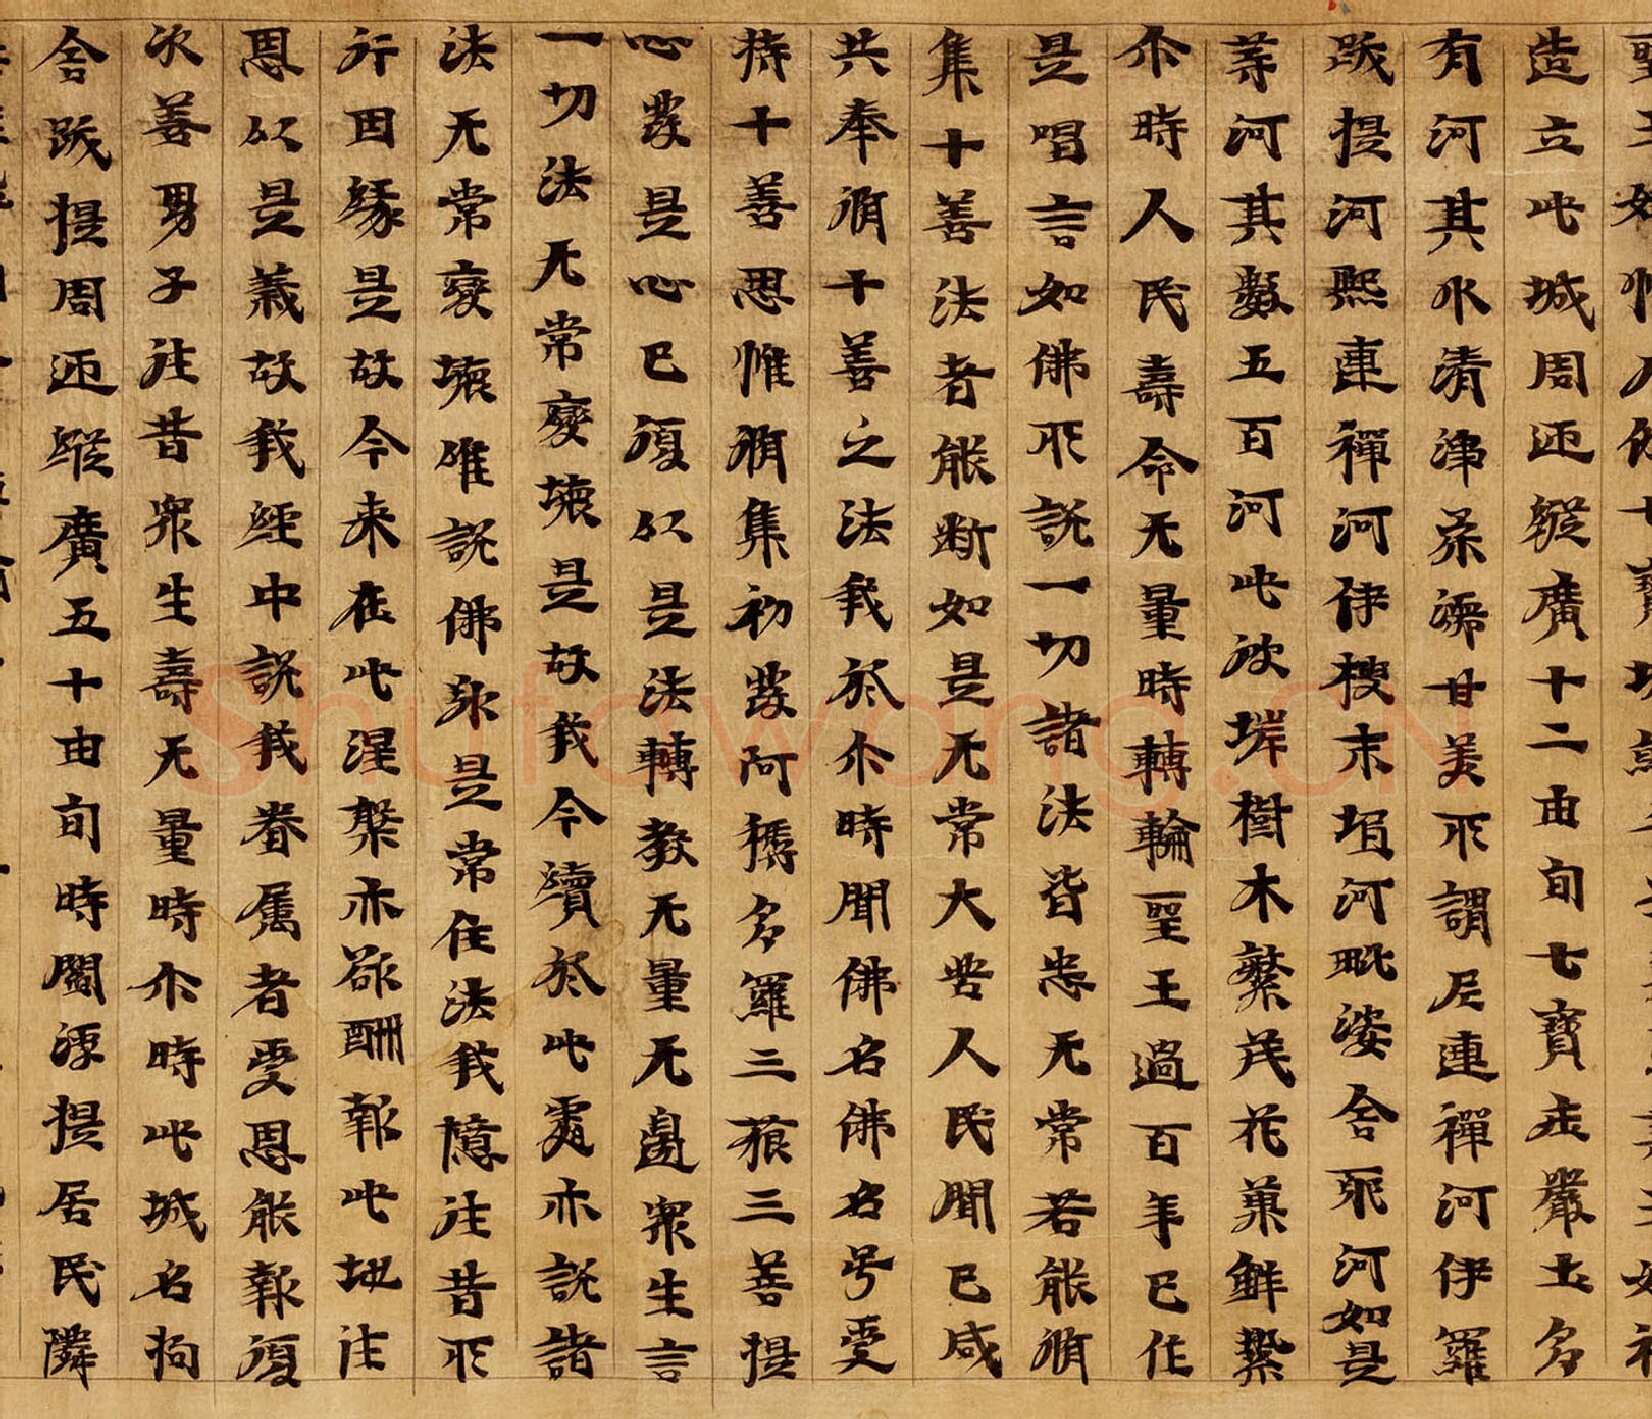 造立此城周迊縱廣十二由旬七寶庄嚴土多
有河其水清淨柔濡甘美所謂尼連禪河伊羅
跋提河熙連禪河伊搜末埛河毗婆舍那河如是
等河其數五百河此彼堓樹木繁茂花菓鮮絜
尒時人民壽命无量時轉輪聖王過百年已作
是唱言如佛所說一切諸法皆悉无常若能脩
集十善法者能断如是无常大苦人民聞已咸
共奉脩十善之法我於尒時聞佛名佛名号受
持十善思惟脩集初發阿耨多羅三藐三菩提
心發是心已復以是法轉教无量无邊衆生言
一切法无常變壊是故我今續於此處亦說諸
法无常變壊唯說佛身是常住法我憶往昔所
行因緣是故今来在此涅槃亦欲酬報此地往
恩以是義故我經中說我眷属者受恩能報復
次善男子往昔衆生壽无量時尒時此城名拘
舍跋提周迊縱廣五十由旬時閻浮提居民隣